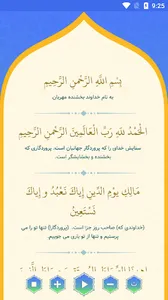 9:25
بِسْمِ اللَّهِ الرَّحْمَٰنِ الرَّحِيمِ
به نام خداوند بخشنده مهربان
الْحَمْدُ لِلَّهِ رَبِّ الْعَالَمِينَ الرَّحْمَٰنِ الرَّحِيمِ
ستایش خدای را که پروردگار جهانیان است. پروردگاری که
بخشنده و بخشایشگر است.
مَالِكِ يَوْمِ الدِّينِ إِيَّاكَ نَعْبُدُ وَ إِيَّاكَ
نَسْتَعِينُ
(خداوندی که) صاحب روز جزا است. (پروردگارا) تنها تو را می
پرستیم و تنها از تو یاری می جوییم.